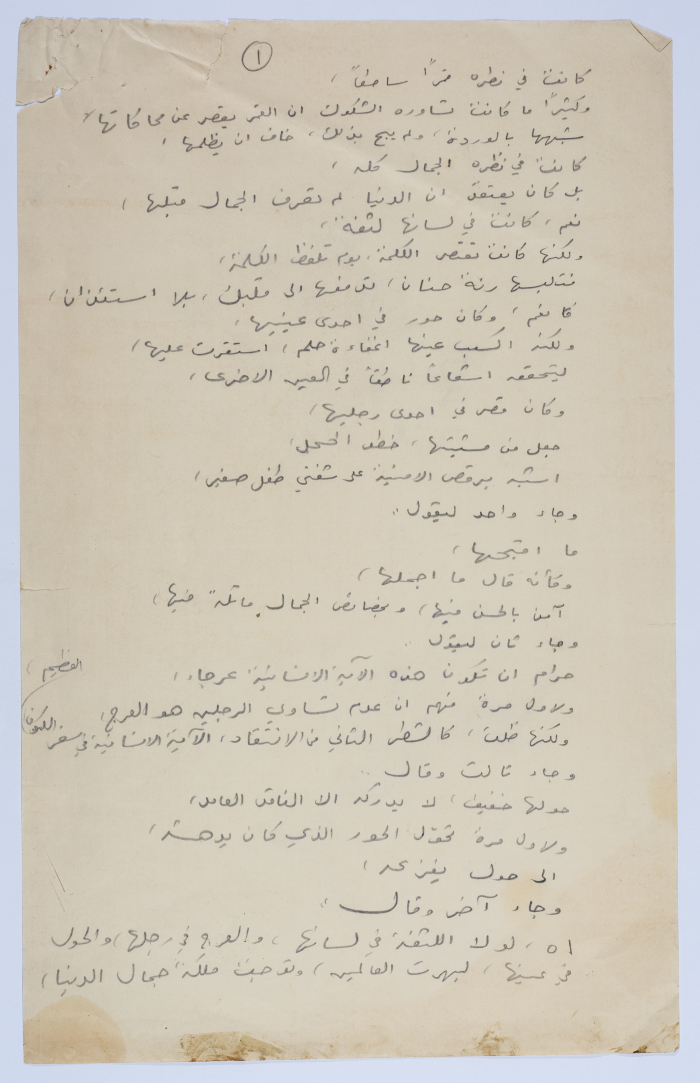 ١
كانت في نظره قمراً ساطعاً،
وكثيراً ما كانت تساوره الشكوك ان القمر يقصر عن محاكاتها،
شبهها بالوردة، ولم يبح بذلك، خاف ان يظلمها،
كانت في نظره الجمال كله،
بل كان يعتقد ان الدنيا لم تعرف الجمال قبلها،
نعم، كانت في لسانها لثغة،
ولكنها كانت تعتصر الكلمة، يوم تلفظ الكلمة،
فتلبسها رنة حنان، تدفعها الى قلبك، بلا استئذان،
كان نعم، وكان حور في احدى عينيها،
ولكنه اكسب عينها اغفاءة حلم، استقرت عليها،
ليتحقق اشعاعاً ناطقاً في العين الاخرى،
وكان قصر في احدى رجليها،
جعل من مشيتها، خطو الحجل،
اشبه برقص الامنية على شفتي طفل صغير،
وجاء واحد ليقول:
ما اقبحها،
وكأنه قال ما اجملها،
آمن بالحسن فيها، وبخصائص الجمال ماثلة فيها،
وجاء ثان ليقول:
حرام ان تكون هذه الآية الانسانية عرجاء،
ولاول مرة فهم ان عدم تساوي الرجلين هو العرج،
ولكنها ظلت، كالشطر الثاني من الانتقاد، الآية الانسانية في سفر الكون العظيم،
وجاء ثالث وقال:
حولها خفيف، لا يدركه الا الناقد العادل،
ولاول مرة تحول الحور الذي كان يدهشه،
الى حول يفزعه،
وجاء آخر وقال:
اه، لولا اللثغة في لسانها، والعرج في رجلها، والحول
في عينها، لبهرت العالمين، ولتوجت ملكة جمال الدنيا،